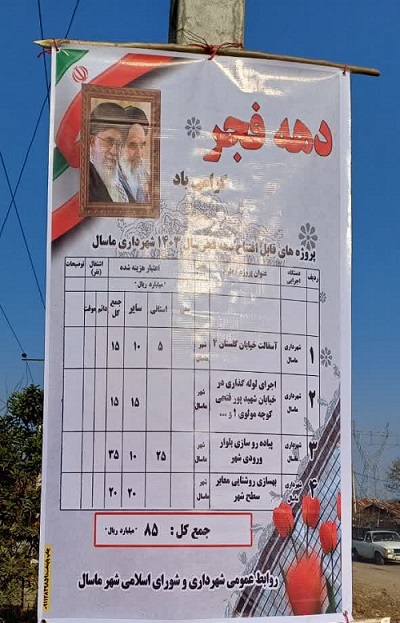 دهه فجر
گرامی باد
پروژه های قابل افتتاح دهه فجر سال ۱۴۰۳ شهرداری ماسال
ردیف دستگاه اجرایی عنوان پروژه اعتبار هزینه شده "میلیارد ریال" اشتغال (نفر) توضیحات
استانی سایر جمع کل دائم موقت
۱ شهرداری ماسال آسفالت خیابان گلستان ۴ شهر ماسال ۵ ۱۰ ۱۵
۲ شهرداری ماسال اجرای لوله گذاری در خیابان شهید پور فتحی کوچه مولوی ۱ و ... شهر ماسال ۱۵ ۱۵
۳ شهرداری ماسال پیاده رو سازی بلوار ورودی شهر شهر ماسال ۲۵ ۱۰ ۳۵
۴ شهرداری بهسازی روشنایی معابر سطح شهر شهر ماسال ۲۰ ۲۰
جمع کل: ۸۵ "میلیارد ریال"
روابط عمومی شهرداری و شورای اسلامی شهر ماسال